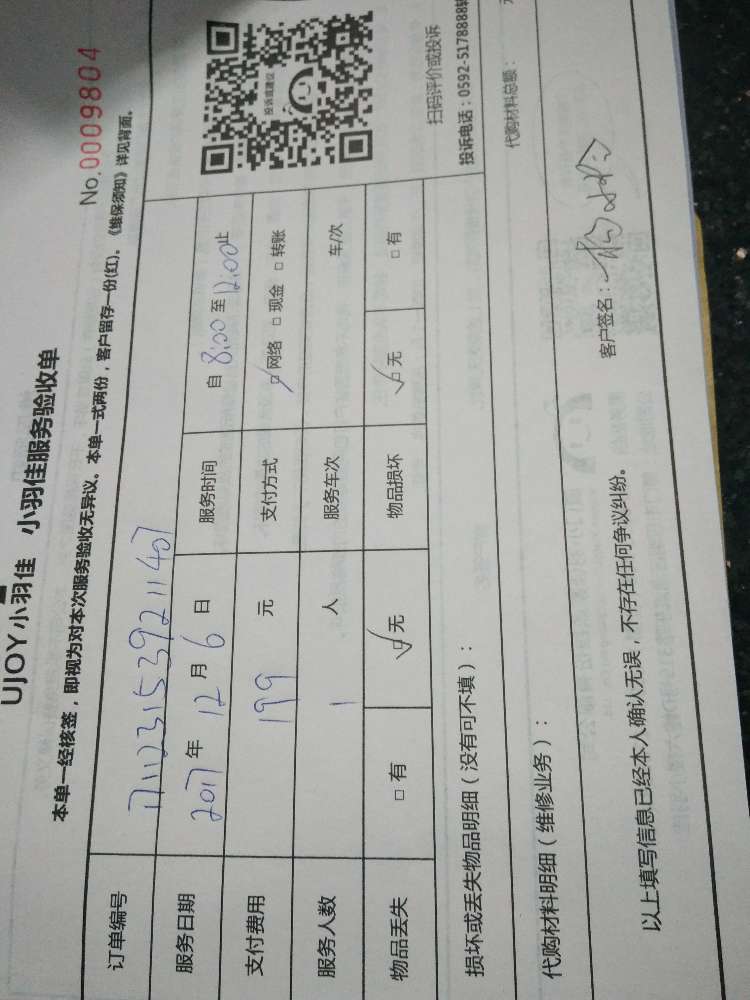 UJOY小羽佳 小羽佳服务验收单
No.0009804
本单一经核签，即视为对本次服务验收无异议。本单一式两份，客户留存一份(红)。《维保须知》详见背面。
订单编号 1711231539211407
服务日期 2017年12月6日 服务时间 自8:00至12:00止
支付费用 199元 支付方式 □网络 □现金 □转账
服务人数 1人 服务车次 车/次
物品丢失 □有 □无 物品损坏 □无 □有
投诉或建议
扫码评价或投诉
投诉电话：0592-5178888转
损坏或丢失物品明细（没有可不填）：
代购材料明细（维修业务）：
代购材料总额：
以上填写信息已经本人确认无误，不存在任何争议纠纷。
客户签名：